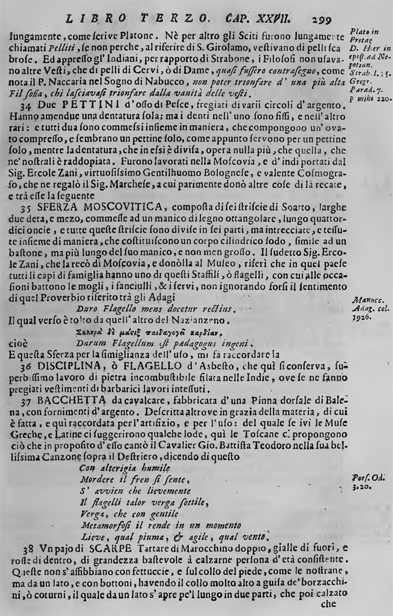 LIBRO TERZO. CAP. XXVII. 299
lungamente, come scrive Platone. Nè per altro gli Sciti furono lungamente
chiamati Pelliti, se non perche, al riferire di S. Girolamo, vestivano di pelli sca
brose. Ed appresso gl'Indiani, per rapporto di Strabone, i Filosofi non usava-
no altre Vesti, che di pelli di Cervi, ò di Dame, quasi fussero contrasegno, come
nota il P. Naccaria nel Sogno di Nabucco, non poter trionfare d'una più alta
Filosofia, chi lasciavasi trionfare dalla vanità delle vesti.
Plato in
Protag
D. Hier in
epist. ad Ne-
potian.
Strab. l. 15.
Geogr.
Parad. 7.
p mihi 220.
34 Due PETTINI d'osso di Pesce, fregiati di varii circoli d'argento.
Hanno amendue una dentatura sola; ma i denti nell'uno sono fissi, e nell'altro
rari: e tutti dua sono commessi insieme in maniera, che compongono un'ova-
to compresso, e sembrano un pettine solo, come appunto servono per un pettine
solo, mentre la dentatura, che in essi è divisa, opera nulla più, che quella, che
ne' nostrali è raddopiata. Furono lavorati nella Moscovia, e d'indi portati dal
Sig. Ercole Zani, virtuosissimo Gentilhuomo Bolognese, e valente Cosmogra-
fo, che ne regalò il Sig. Marchese, a cui parimente donò altre cose di là recate,
e trà esse la seguente
35 SFERZA MOSCOVITICA, composta di sei striscie di Soatto, larghe
due deta, e mezo, commesse ad un manico di legno ottangolare, lungo quattor-
dici oncie, e tutte queste striscie sono divise in sei parti, ma intrecciate, e tessu-
te insieme di maniera, che costituiscono un corpo cilindrico sodo, simile ad un
bastone, ma più lungo del suo manico, e non men grosso. Il sudetto Sig. Erco-
le Zani, che la recò di Moscovia, e donòlla al Museo, riferì che in quel paese
tutti li capi di famiglia hanno uno di questi Staffili, ò flagelli, con cui alle occa-
sioni battono le mogli, i fanciulli, & i servi, non ignorando forsi il sentimento
di quel Proverbio riferito trà gli Adagi
Duro Flagello mens docetur rectius.
Manuc.
Adag. col.
1926.
Il qual verso è tolto da quell'altro del Nazianzeno.
cioè Durum Flagellum sit pædagogus ingeni.
E questa Sferza per la simiglianza dell'uso, mi fà raccordare la
36 DISCIPLINA, ò FLAGELLO d'Asbesto, che quì si conserva, su-
perbissimo lavoro di pietra incombustibile filata nelle Indie, ove se ne fanno
pregiati vestimenti di barbarici lavori intessuti.
37 BACCHETTA da cavalcare, fabbricata d'una Pinna dorsale di Bale-
na, con fornimenti d'argento. Descritta altrove in grazia della materia, di cui
è fatta, e quì raccordata per l'artifizio, e per l'uso: del quale se ivi le Muse
Greche, e Latine ci suggerirono qualche lode, quì le Toscane ci propongono
ciò che in proposito d'esso cantò il Cavalier Gio. Battista Teodoro nella sua bel-
lissima Canzone sopra il Destriero, dicendo di questo
Con alterigia humile
Mordere il fren si sente,
S' avvien che lievemente
Il flagelli talor verga sottile,
Verga, che con gentile
Metamorfosi il rende in un momento
Lieve, qual piuma, & agile, qual vento.
Poes. Od.
3. 20.
38 Un pajo di SCARPE Tartare di Marocchino doppio, gialle di fuori, e
rosse di dentro, di grandezza bastevole à calzarne persona d'età consistente.
Queste non s'affibbiano con fettuccie, e sul collo del piede, come le nostrane,
ma da un lato, e con bottoni, havendo il collo molto alto a guisa de' borzacchi-
ni, ò coturni, il quale da un lato s'apre pe'l lungo in due parti, che poi calzato
che